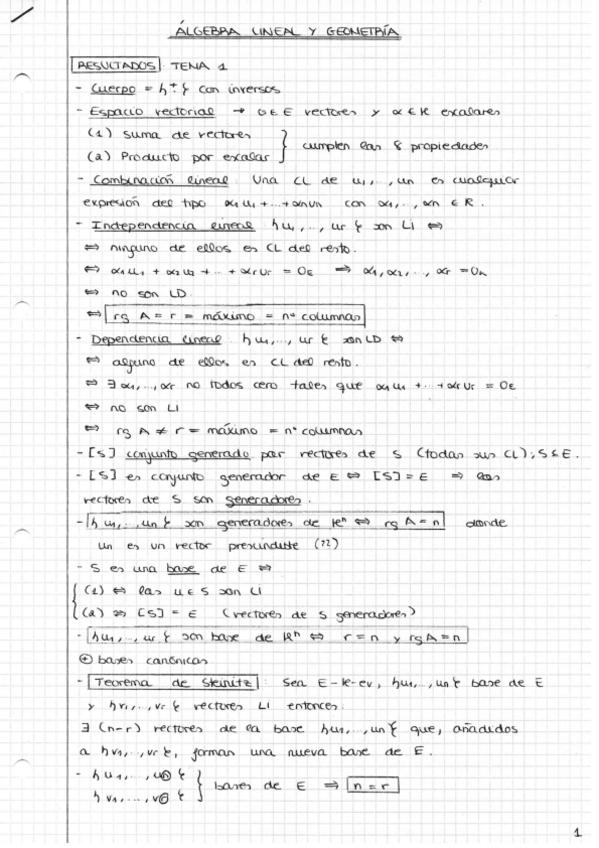 ÁLGEBRA LINEAL Y GEOMETRÍA
RESULTADOS TEMA 1
- Cuerpo = {±} con inversos
- Espacio vectorial → u ∈ E vectores y α ∈ K escalares
(1) suma de vectores
(2) Producto por escalar } cumplen las 8 propiedades
- Combinación lineal Una CL de u1,..,un es cualquier
expresión del tipo α1u1 + ... + αnun con α1,..,αn ∈ R.
- Independencia lineal {u1,..,ur} son LI ⇔
⇔ ninguno de ellos es CL del resto.
⇔ α1u1 + α2u2 + .. + αrur = 0E ⇒ α1, α2,.., αr = 0K
⇔ no son LD
⇔ rg A = r = máximo = nº columnas
- Dependencia lineal {u1,..., ur} son LD ⇔
⇔ alguno de ellos es CL del resto.
⇔ ∃ α1,..,αr no todos cero tales que α1u1 + .. + αrur = 0E
⇔ no son LI
⇔ rg A ≠ r = máximo = nº columnas
- [S] conjunto generado por vectores de S (todas sus CL); S ⊆ E.
- [S] es conjunto generador de E ⇔ [S] = E ⇒ los
vectores de S son generadores.
- {u1,..,un} son generadores de ℝⁿ ⇔ rg A = n donde
un es un vector prescindible (??)
- S es una base de E ⇔
(1) ⇔ las u ∈ S son LI
(2) ⇔ [S] = E (vectores de S generadores)
- {u1,..,ur} son base de ℝⁿ ⇔ r = n y rg A = n
⊕ bases canónicas
- Teorema de Steinitz : Sea E-K-ev, {u1,..,un} base de E
y {v1,..,vr} vectores LI entonces:
∃ (n-r) vectores de la base {u1,..,un} que, añadidos
a {v1,..,vr}, forman una nueva base de E.
- {u1,..,un}
{v1,..,vr} } bases de E ⇒ n = r
1